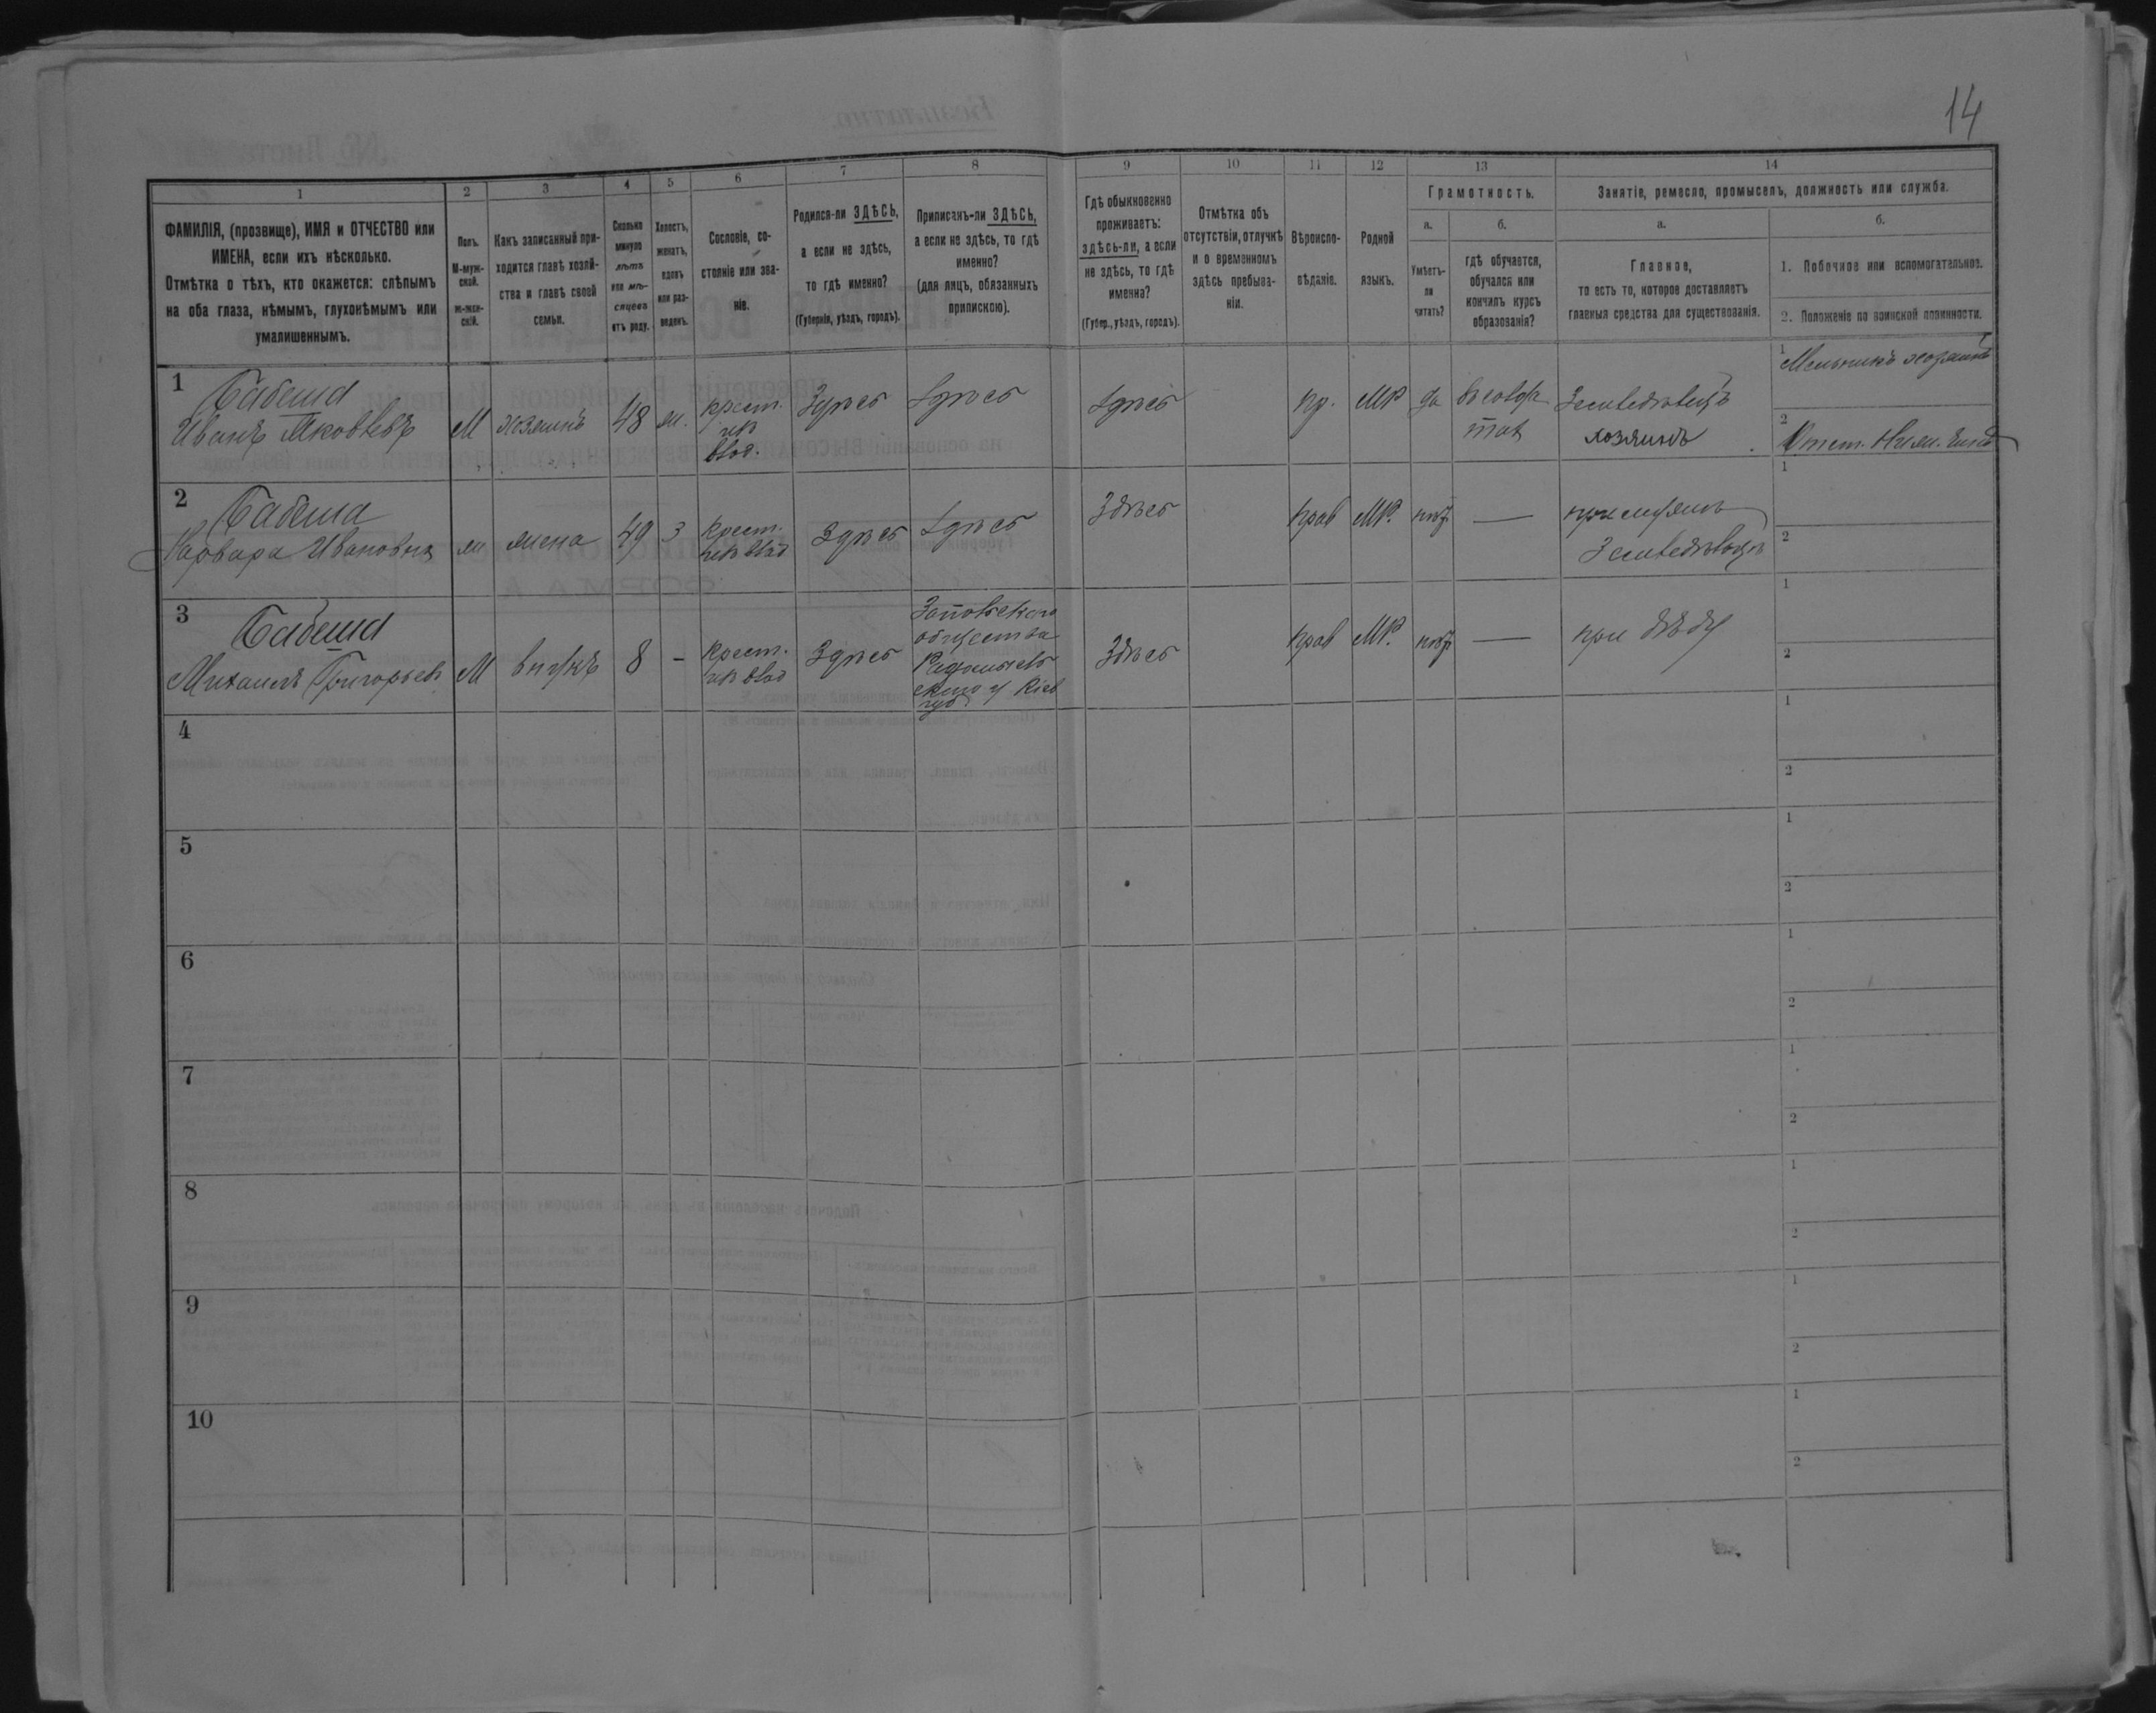 14
1
2
3
4
5
6
7
8
9
10
11
12
13
14
ФАМИЛІЯ, (прозвище), ИМЯ и ОТЧЕСТВО или
ИМЕНА, если ихъ нѣсколько.
Отмѣтка о тѣхъ, кто окажется: слѣпымъ
на оба глаза, нѣмымъ, глухонѣмымъ или
умалишеннымъ.
Полъ.
М-муж-
ской.
ж-жен-
скій.
Какъ записанный при-
ходится главѣ хозяй-
ства и главѣ своей
семьи.
Сколько
минуло
лѣтъ
или мѣ-
сяцевъ
отъ роду.
Холостъ,
женатъ,
вдовъ
или раз-
веденъ.
Сословіе, со-
стояніе или зва-
ніе.
Родился-ли ЗДѢСЬ,
а если не здѣсь,
то гдѣ именно?
(Губернія, уѣздъ, городъ).
Приписанъ-ли ЗДѢСЬ,
а если не здѣсь, то гдѣ
именно?
(для лицъ, обязанныхъ
припискою).
Гдѣ обыкновенно
проживаетъ:
здѣсь-ли, а если
не здѣсь, то гдѣ
именно?
(Губер., уѣздъ, городъ).
Отмѣтка объ
отсутствіи, отлучкѣ
и о временномъ
здѣсь пребыва-
ніи.
Вѣроиспо-
вѣданіе.
Родной
языкъ.
Грамотность.
а.
Умѣетъ-
ли
читать?
б.
гдѣ обучается,
обучался или
кончилъ курсъ
образованія?
Занятіе, ремесло, промыселъ, должность или служба.
а.
Главное,
то есть то, которое доставляетъ
главныя средства для существованія.
б.
1. Побочное или вспомогательное.
2. Положеніе по воинской повинности.
1 Бабеша
Иванъ Яковлевъ
М
хозяинъ
48
ж.
крест.
Здѣсь
Здѣсь
Здѣсь
пр.
МР
да
Земледѣлецъ
хозяинъ
1 Мельникъ хозяинъ
2
2 Бабеша
Варвара Ивановна
ж
жена
49
З
крест.
Здѣсь
Здѣсь
Здѣсь
прав
МР.
—
при мужѣ
1
2
3 Бабеша
Михаилъ Григорьев
М
внукъ
8
-
крест.
Здѣсь
общества
Радомысль
ского у Кіев
губ.
Здѣсь
прав
МР.
—
при дѣду
1
2
4
1
2
5
1
2
6
1
2
7
1
2
8
1
2
9
1
2
10
1
2